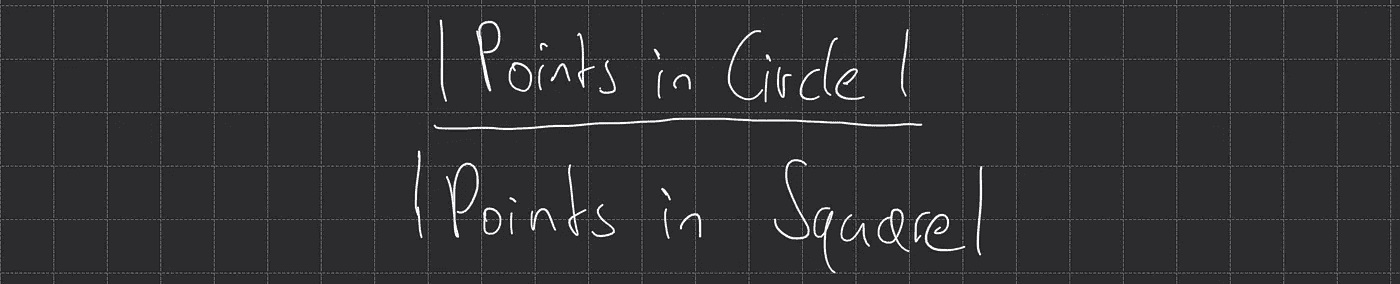 |Points in Circle|
|Points in Square|